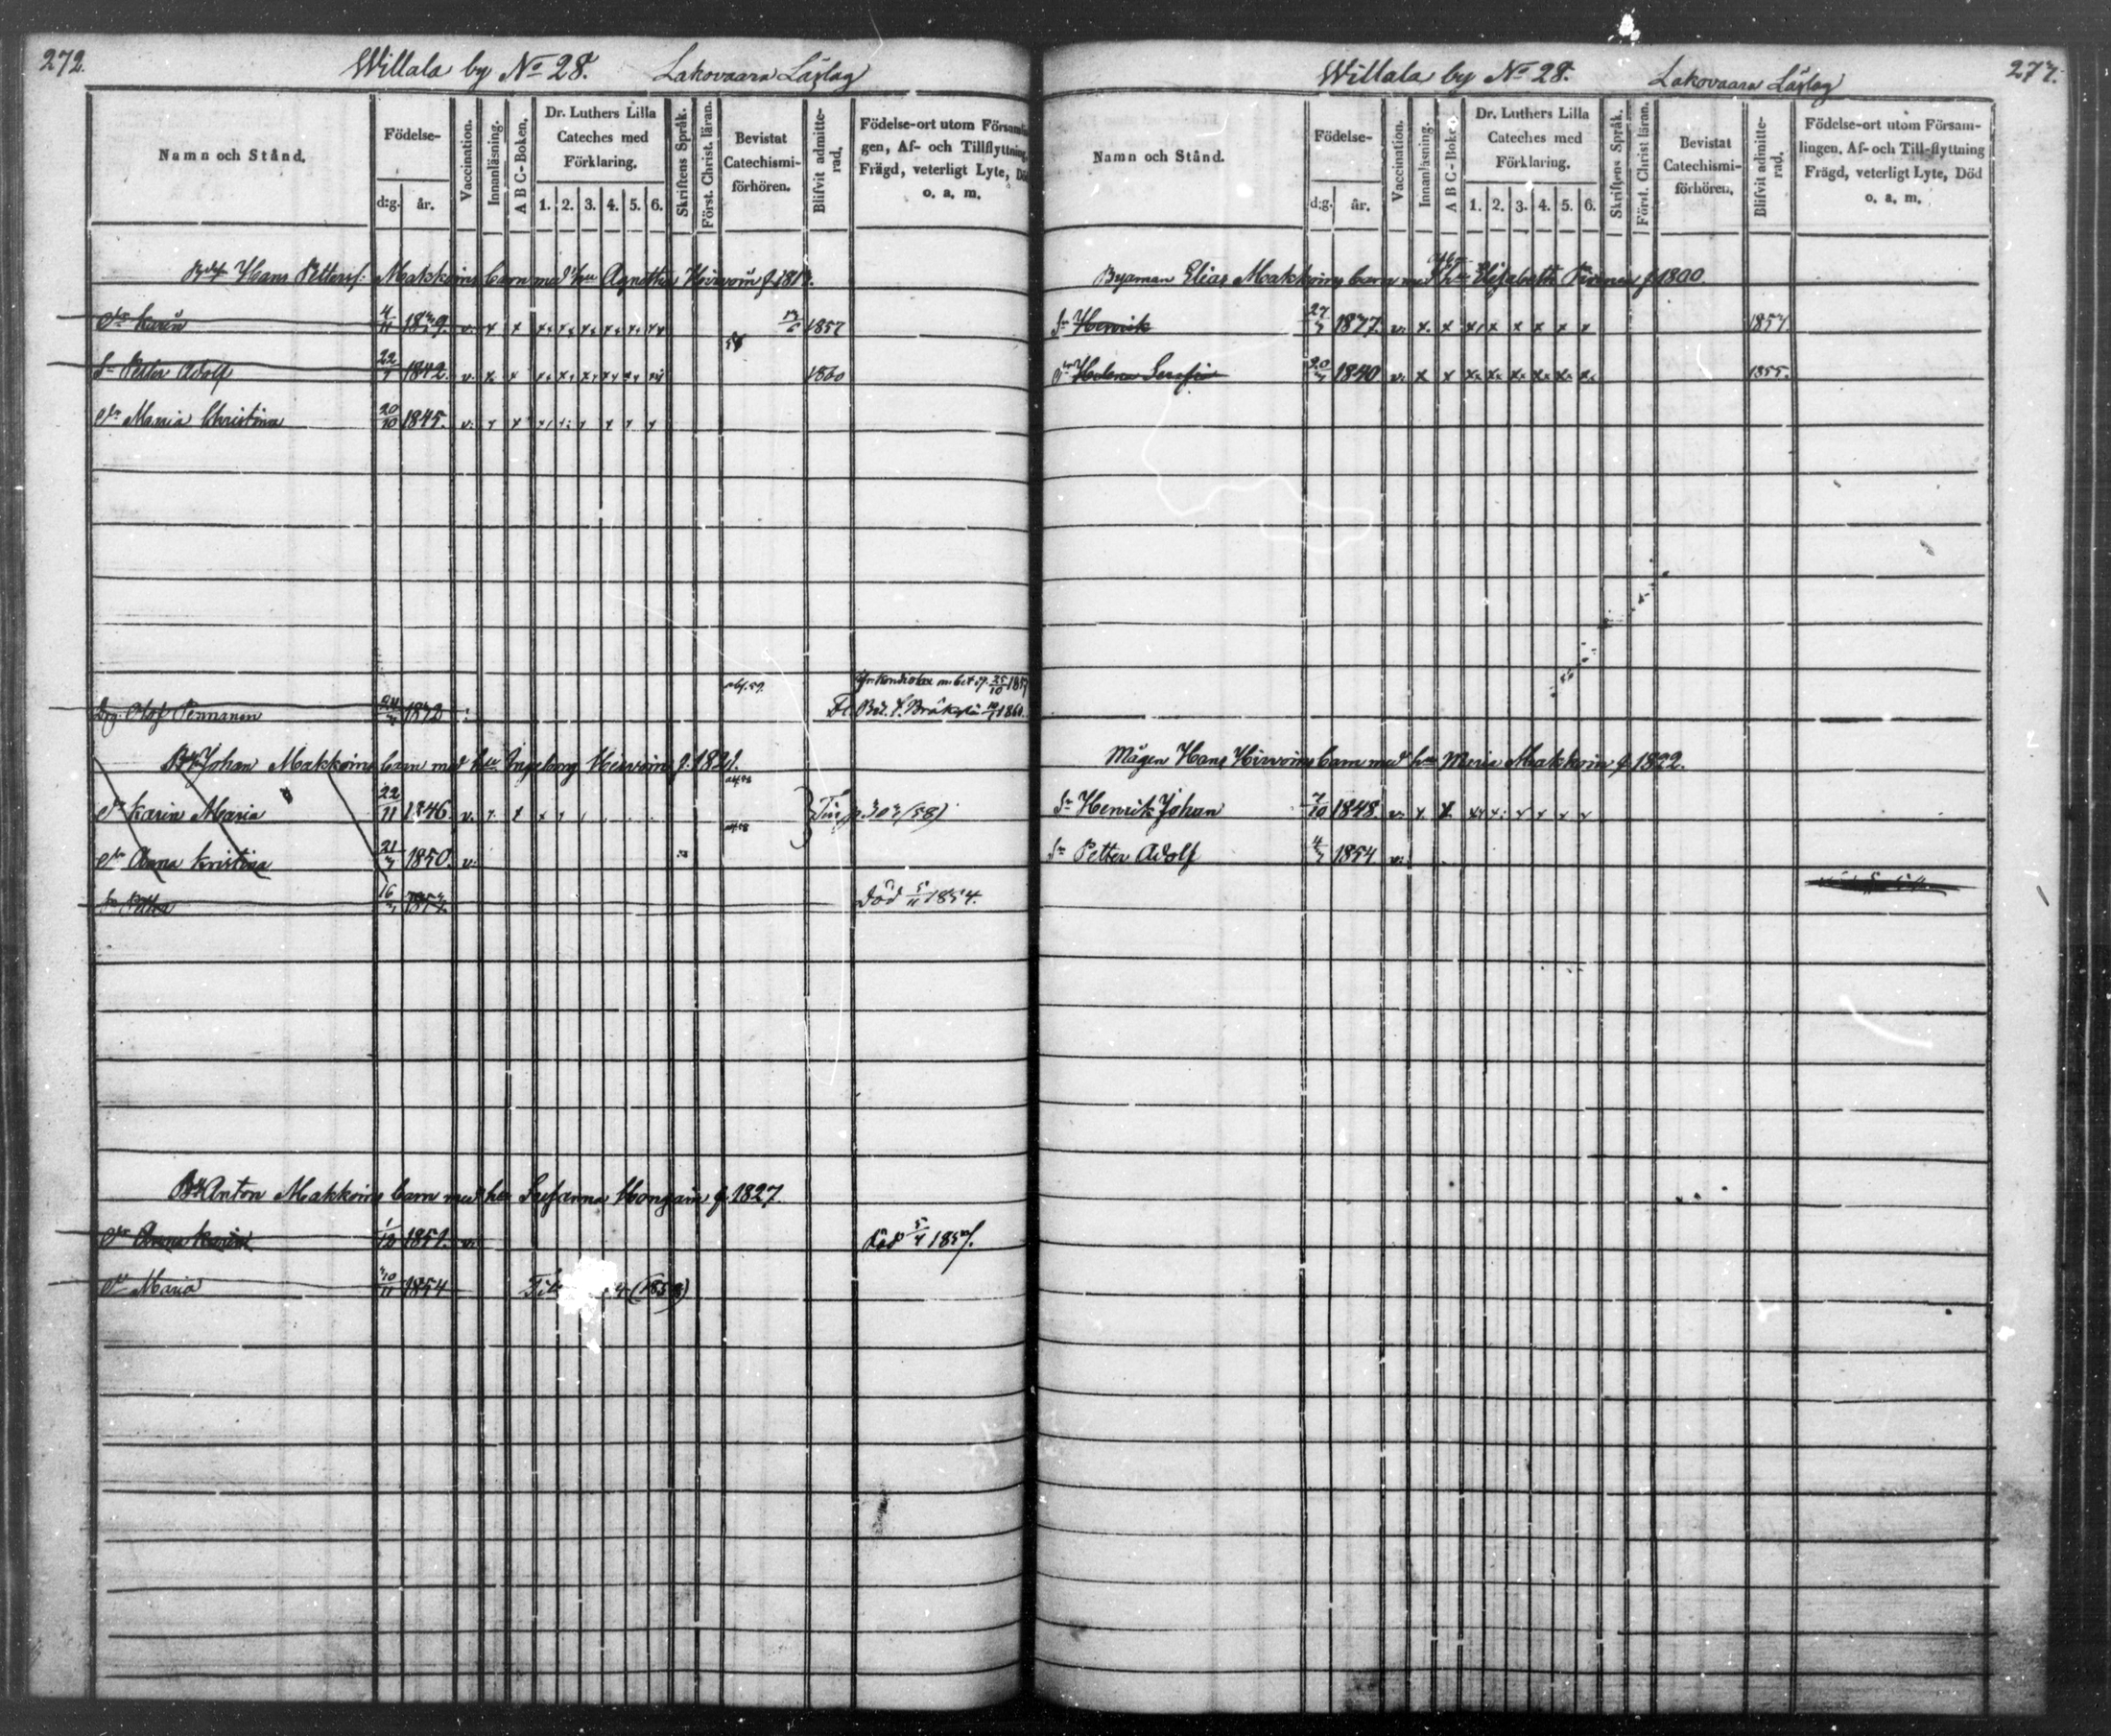 272.
Willala by No 28. Lakovaara Läslag
Namn och Stånd.
Födelse-
d:g. år.
Vaccination.
Innanläsning.
A B C-Boken.
Dr. Luthers Lilla
Cateches med
Förklaring.
1. 2. 3. 4. 5. 6.
Skriftens Språk.
Först. Christ. läran.
Bevistat
Catechismi-
förhören.
Blifvit admitte-
rad.
Födelse-ort utom Församlin
gen, Af- och Tillflyttning,
Frägd, veterligt Lyte, Död
o. a. m.
Hans Petterss: Makkoins barn med hu Agnetha Hirvoin f.
Dr Karin 4/11 v. x x 1857
Sn Petter Adolf 22/ 1842. v. x x 1860
Dr Maria Christina 20/10 1845. v. x x
25/10
Drg. Olof Pennanen 1860.
Johan Makkoins barn med hu Ingeborg Hirvoin f. 1821.
Dr Karin Maria 22/11 1846. v. x x
Dr Anna Kristina 21/ 1850. v.
Sn Petter 16/ Död 5/11 1854.
Anton Makkoins barn med hu Susanna Hongain f. 1827
Dr Anna Karin 1/12 1851. v. Död 5/4
Dr Maria 1854
277.
Willala by No 28. Lakovaara Läslag
Namn och Stånd.
Födelse-
d:g. år.
Vaccination.
Innanläsning.
A B C-Boken.
Dr. Luthers Lilla
Cateches med
Förklaring.
1. 2. 3. 4. 5. 6.
Skriftens Språk.
Först. Christ läran.
Bevistat
Catechismi-
förhören.
Blifvit admitte-
rad.
Födelse-ort utom Försam-
lingen, Af- och Till-flyttning
Frägd, veterligt Lyte, Död
o. a. m.
Byaman Elias Makkoins barn med hu Elisabeth f 1800.
Sn Henrik 27/ v. x x x x x x x x
Dr Helena Serafia 20/ 1840 v. x x 1855.
Mågen Hans Hirvoins barn med hu Maria Makkoin f 1822.
Sn Henrik Johan 7/10 1848. v. x x
Sn Petter Adolf 4/ 1854 v.